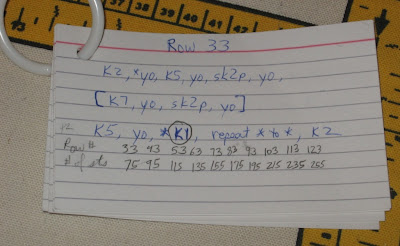 39 40 41 42
Row 33
K2, *yo, K5, yo, sk2p, yo,
[K7, yo, sk2p, yo]
K5, yo, *K1, repeat * to *, K2
Row # 33 43 53 63 73 83 93 103 113 123
# of sts 75 95 115 135 155 175 195 215 235 255